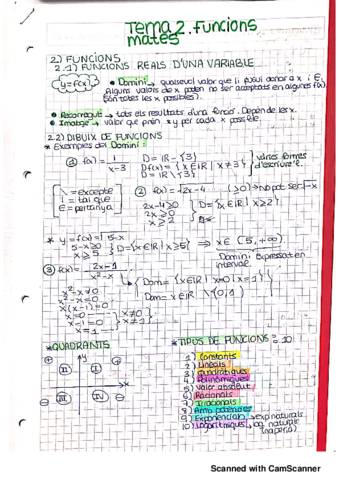 Tema 2. Funcions
mates
2) FUNCIONS
2.1) FUNCIONS REALS D'UNA VARIABLE
y=f(x)
• Domini → qualsevol valor que li pugui donar a x i E,
Alguns valors de x poden no ser acceptats en algunes f(x).
(són totes les x possibles).
• Recorregut → tots els resultats d'una funció. Depèn de les x.
• Imatge → valor que pren x y per cada x possible.
2.2) DIBUIX DE FUNCIONS
* Exemples del Domini:
① f(x) = 1/x-3
D = ℝ - {3}
Df(x) = {x∈ℝ | x≠3}
D = ℝ \ {3}
vàries formes
d'escriure'l.
\ = excepte
| = tal que
∈ = pertanya
② f(x) = √2x-4 (≥0) → No pot ser √-x
2x-4≥0
2x≥0
x≥2
D = {x∈ℝ | x≥2}
* y = f(x) = √5-x
5-x≥0
x≥5
D = {x∈ℝ | x≥5} ⟹ x∈ [5,+∞)
Domini expressat en
interval.
③ f(x) = 2x-1/x²-x
x²-x≠0
x²-x=0
x(x-1)=0
x=0
x-1=0
x=1
x≠0
x≠1
Dom = {x∈ℝ | x≠0 | x=1}
Dom = x∈ℝ \ {0,1}
* QUADRANTS
y
x
II
I
III
IV
* TIPUS DE FUNCIONS: 10
1) Constants
2) Lineals
3) Quadràtiques
4) Polinòmiques
5) Valor absolut
6) Racionals
7) Irracionals
8)
9) Exponencials → exp naturals
10) Logarítmiques → log naturals
(neperià)
Scanned with CamScanner